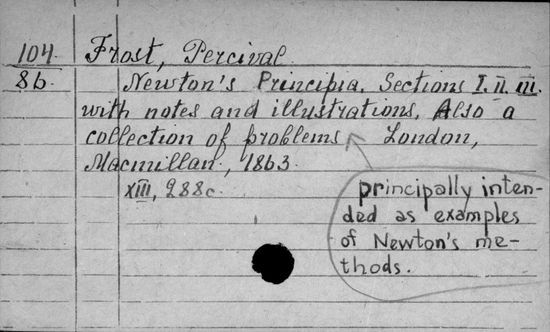 104 Frost, Percival
8b. Newton's Principia. Sections I. II. III.
with notes and illustrations. Also a
collection of problems London,
Macmillan, 1863
XIII, 288c.
principally inten-
ded as examples
of Newton's me-
thods.